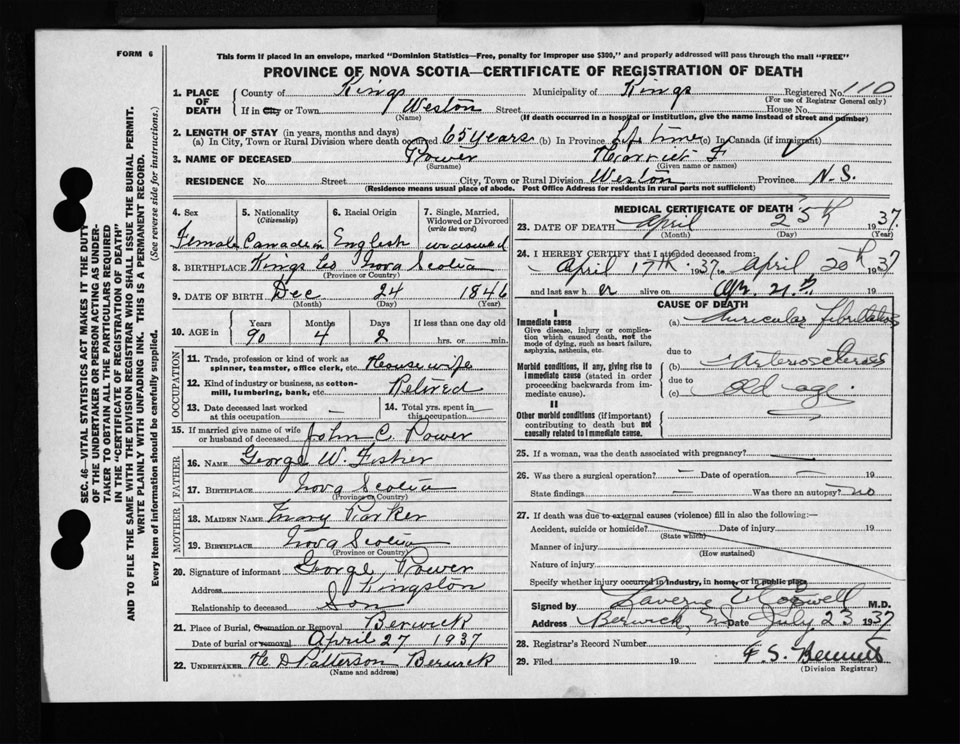 FORM 6
This form if placed in an envelope, marked "Dominion Statistics—Free, penalty for improper use $300," and properly addressed will pass through the mail "FREE"
PROVINCE OF NOVA SCOTIA—CERTIFICATE OF REGISTRATION OF DEATH
SEC. 46—VITAL STATISTICS ACT MAKES IT THE DUTY
OF THE UNDERTAKER OR PERSON ACTING AS UNDER-
TAKER TO OBTAIN ALL THE PARTICULARS REQUIRED
IN THE "CERTIFICATE OF REGISTRATION OF DEATH"
AND TO FILE THE SAME WITH THE DIVISION REGISTRAR WHO SHALL ISSUE THE BURIAL PERMIT.
WRITE PLAINLY WITH UNFADING INK. THIS IS A PERMANENT RECORD.
Every item of information should be carefully supplied. (See reverse side for instructions.)
1. PLACE OF DEATH
County of Kings Municipality of Kings Registered No. 110
(For use of Registrar General only)
If in City or Town Weston Street House No.
(Name) (If death occurred in a hospital or institution, give the name instead of street and number)
2. LENGTH OF STAY (in years, months and days)
(a) In City, Town or Rural Division where death occurred 65 years (b) In Province Life time (c) In Canada (if immigrant)
3. NAME OF DECEASED Power F
(Surname) (Given name or names)
RESIDENCE No. Street City, Town or Rural Division Weston Province N.S.
(Residence means usual place of abode. Post Office Address for residents in rural parts not sufficient)
4. Sex Female
5. Nationality (Citizenship) Canadian
6. Racial Origin English
7. Single, Married, Widowed or Divorced (write the word) widowed
8. BIRTHPLACE Kings Co Nova Scotia
(Province or Country)
9. DATE OF BIRTH Dec 24 1846
(Month) (Day) (Year)
10. AGE in Years 90 Months 4 Days 2 If less than one day old hrs. or min.
OCCUPATION
11. Trade, profession or kind of work as spinner, teamster, office clerk, etc. Housewife
12. Kind of industry or business, as cotton-mill, lumbering, bank, etc. Retired
13. Date deceased last worked at this occupation —
14. Total yrs. spent in this occupation —
15. If married give name of wife or husband of deceased John C. Power
FATHER
16. NAME George W. Fisher
17. BIRTHPLACE Nova Scotia
(Province or Country)
MOTHER
18. MAIDEN NAME Mary Parker
19. BIRTHPLACE Nova Scotia
(Province or Country)
20. Signature of informant George Power
Address Kingston
Relationship to deceased Son
21. Place of Burial, Cremation or Removal Berwick
Date of burial or removal April 27 1937
22. UNDERTAKER H. D Patterson Berwick
(Name and address)
MEDICAL CERTIFICATE OF DEATH
23. DATE OF DEATH April 25th 1937.
(Month) (Day) (Year)
24. I HEREBY CERTIFY that I attended deceased from:
April 17th 1937 to April 20th 1937
and last saw her alive on 19
CAUSE OF DEATH
I
Immediate cause
Give disease, injury or complication which caused death, not the mode of dying, such as heart failure, asphyxia, asthenia, etc.
(a) Auricular fibrillation
due to
Morbid conditions, if any, giving rise to immediate cause (stated in order proceeding backwards from immediate cause).
(b) Arteriosclerosis
due to
(c) Old age
II
Other morbid conditions (if important) contributing to death but not causally related to immediate cause.
25. If a woman, was the death associated with pregnancy? —
26. Was there a surgical operation? — Date of operation — 19
State findings Was there an autopsy? no
27. If death was due to external causes (violence) fill in also the following:—
Accident, suicide or homicide? Date of injury 19
(State which)
Manner of injury
(How sustained)
Nature of injury
Specify whether injury occurred in industry, in home, or in public place
Signed by Laverne M.D.
Address Berwick, Date July 23 1937
28. Registrar's Record Number
29. Filed 19 F. S. Bennett
(Division Registrar)